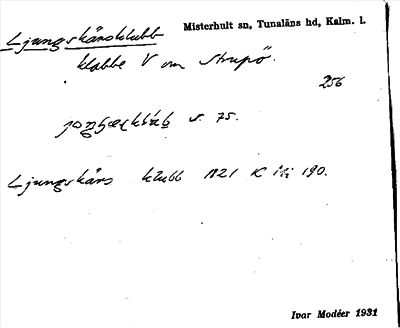 Ljungskärsklubb
Misterhult sn, Tunaläns hd, Kalm. l.
klabbe V om Strupö.
256
s. 75.
Ljungskärs klubb 1821 K 190.
Ivar Modéer 1931